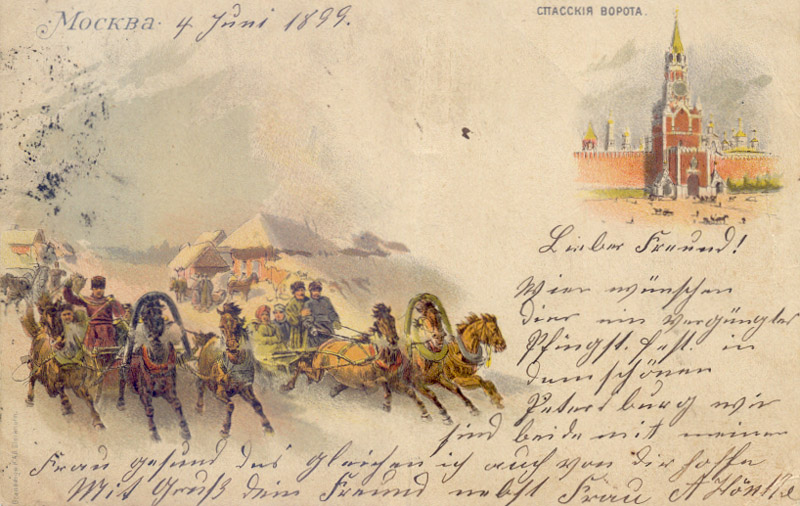 Москва. 4 Juni 1899.
СПАССКІЯ ВОРОТА.
Lieber Freund!
Wier wünschen
dier ein vergüngtes
Pfingst. fest. in
dem schönen
Petersburg wir
sind beide mit meiner
Frau gesund des gleichen ich auch von dir hoffe
Mit Gruß dein Freund nebst Frau A